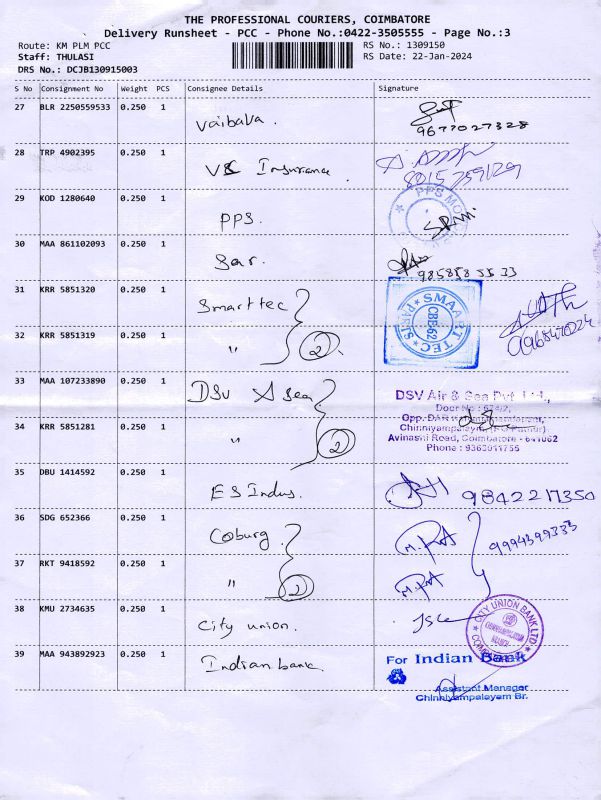 THE PROFESSIONAL COURIERS, COIMBATORE
Delivery Runsheet - PCC - Phone No.:0422-3505555 - Page No.:3
Route: KM PLM PCC
RS No.: 1309150
Staff: THULASI
RS Date: 22-Jan-2024
DRS No.: DCJB130915003
S No Consignment No Weight PCS Consignee Details Signature
27 BLR 2250559533 0.250 1 Vaibava.
9677027328
28 TRP 4902395 0.250 1 Insurance
29 KOD 1280640 0.250 1 PPS.
PPS
30 MAA 861102093 0.250 1 Sar.
31 KRR 5851320 0.250 1 Smarttec
SMAART TEC
CBE-62
32 KRR 5851319 0.250 1 〃 2
33 MAA 107233890 0.250 1 DSV A Sea
DSV Air & Sea Pvt. Ltd.,
34 KRR 5851281 0.250 1 〃 2
Avinashi Road, Coimbatore - 641062
35 DBU 1414592 0.250 1 ES Indus.
9842217350
36 SDG 652366 0.250 1 Coburg
9994399333
37 RKT 9418592 0.250 1 〃 2
38 KMU 2734635 0.250 1 City union.
CITY UNION BANK LTD
39 MAA 943892923 0.250 1 Indian bank.
For Indian Bank
Assistant Manager
Chinniyampalayam Br.